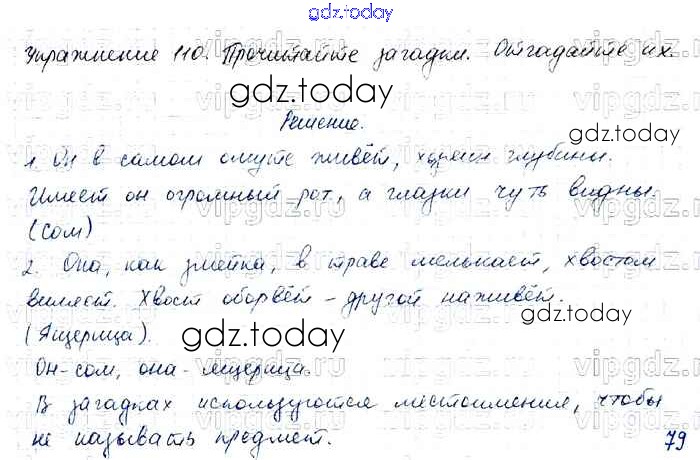 gdz.today
Упражнение 110. Прочитайте загадки. Отгадайте их.
gdz.today
Решение.
gdz.today
1. Он в самом омуте живёт, хозяин глубины.
Имеет он огромный рот, а глазки чуть видны.
(сом)
2. Она, как змейка, в траве мелькает, хвостом
виляет. Хвост оборвёт - другой наживёт.
(Ящерица).
gdz.today
Он-сом, она-ящерица.
В загадках используются местоимения, чтобы
не называть предмет.
79